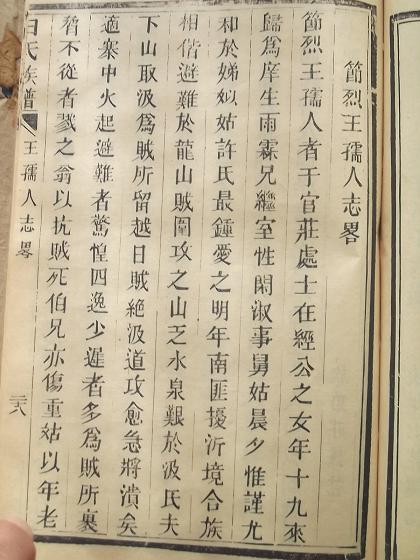 節烈王孺人志畧
節烈王孺人者于官莊處士在經公之女年十九來
歸爲庠生雨霖兄繼室性閑淑事舅姑晨夕惟謹尤
和於娣姒姑許氏最鍾愛之明年南匪擾沂境合族
相偕避難於龍山賊圍攻之山乏水泉艱於汲氏夫
下山取汲爲賊所留越日賊絶汲道攻愈急將潰矣
適寨中火起避難者驚惶四逸少遲者多爲賊所裏
暂不從者戮之翁以抗賊死伯兄亦傷重姑以年老
氏族譜
王孺人志畧
二十八